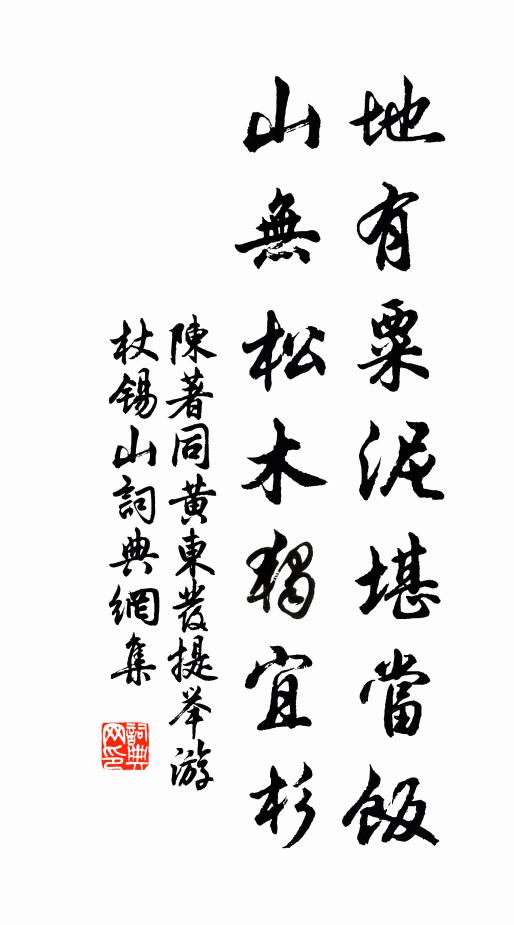 地有粟泥堪當飯
山無松木獨宜杉
陳著同黃東發提举游
杖錫山詞典網集
詞典網印